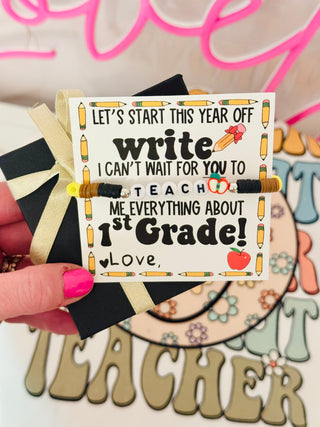 LET'S START THIS YEAR OFF
write
I CAN'T WAIT FOR YOU TO
TEACH
ME EVERYTHING ABOUT
1st Grade!
LOVE,
TEACHER